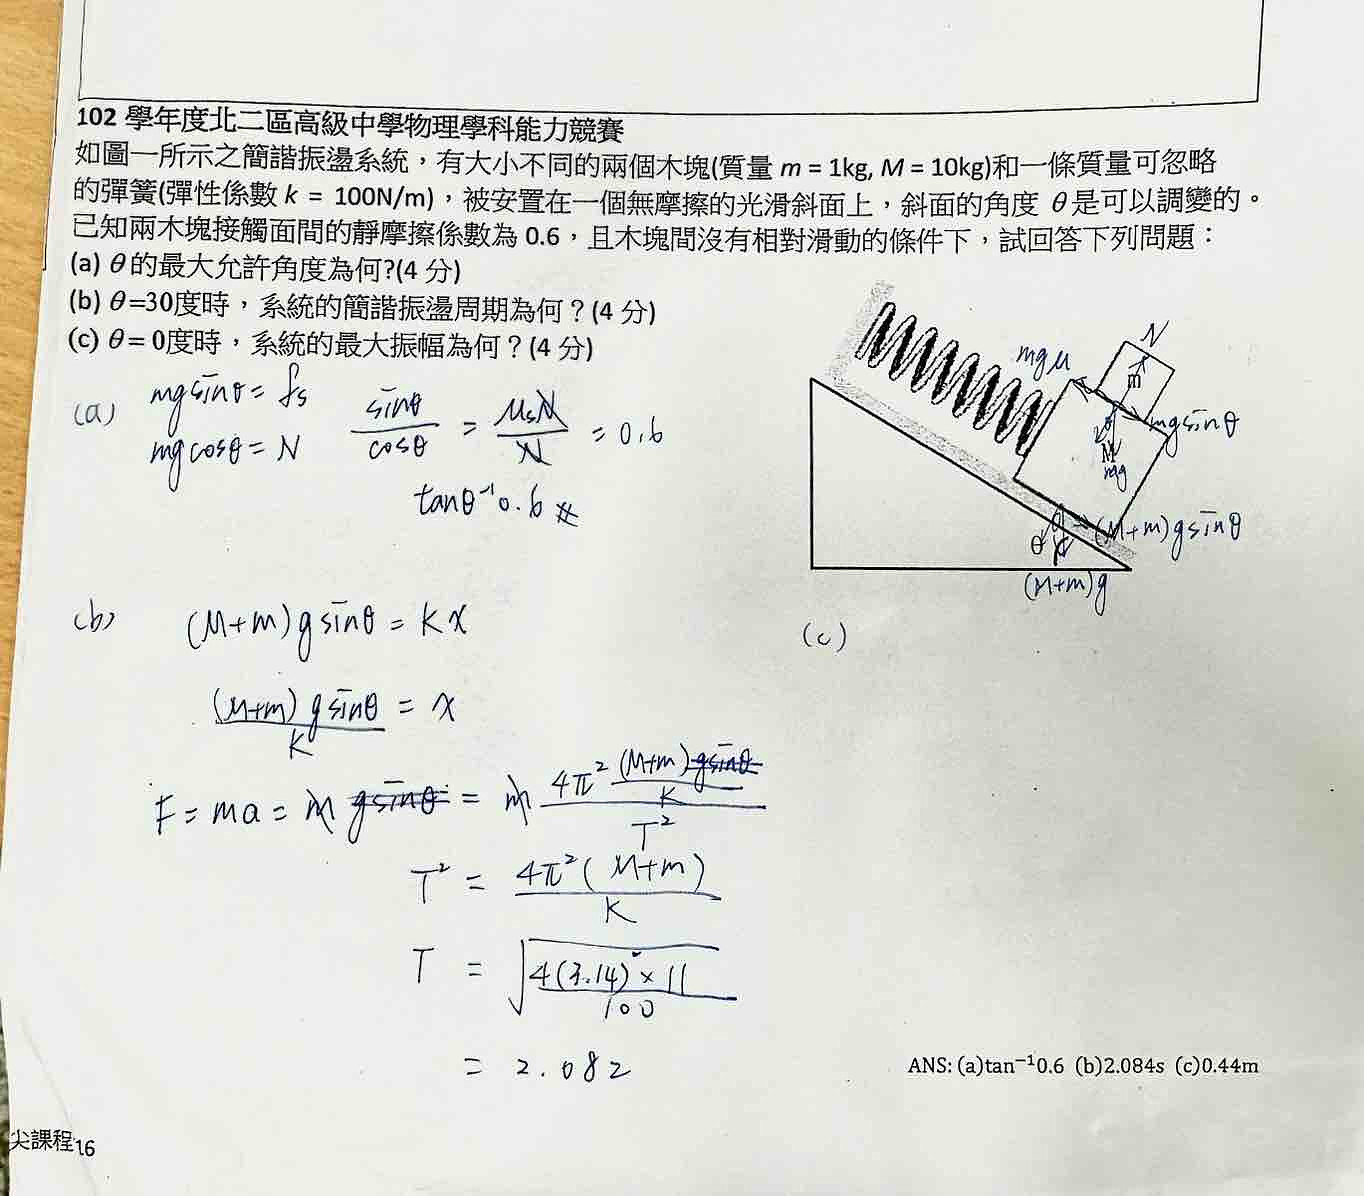 102 學年度北二區高級中學物理學科能力競賽
如圖一所示之簡諧振盪系統，有大小不同的兩個木塊(質量 m = 1kg, M = 10kg)和一條質量可忽略
的彈簧(彈性係數 k = 100N/m)，被安置在一個無摩擦的光滑斜面上，斜面的角度 θ 是可以調變的。
已知兩木塊接觸面間的靜摩擦係數為 0.6，且木塊間沒有相對滑動的條件下，試回答下列問題：
(a) θ 的最大允許角度為何?(4 分)
(b) θ=30度時，系統的簡諧振盪周期為何？(4 分)
(c) θ= 0度時，系統的最大振幅為何？(4 分)
(a) mg sinθ = fs
mg cosθ = N
sinθ/cosθ = μsN/N = 0.6
tanθ⁻¹0.6 #
N
mgμ
m
mg sinθ
θ
M
mg
θ
(M+m)g sinθ
(M+m)g
(b) (M+m)g sinθ = Kx
(M+m)g sinθ/K = x
F = ma = m g sinθ = m 4π² (M+m)g sinθ/K / T²
T² = 4π²(M+m)/K
T = √4(3.14)²×11/100
= 2.082
(c)
ANS: (a)tan⁻¹0.6 (b)2.084s (c)0.44m
尖課程16